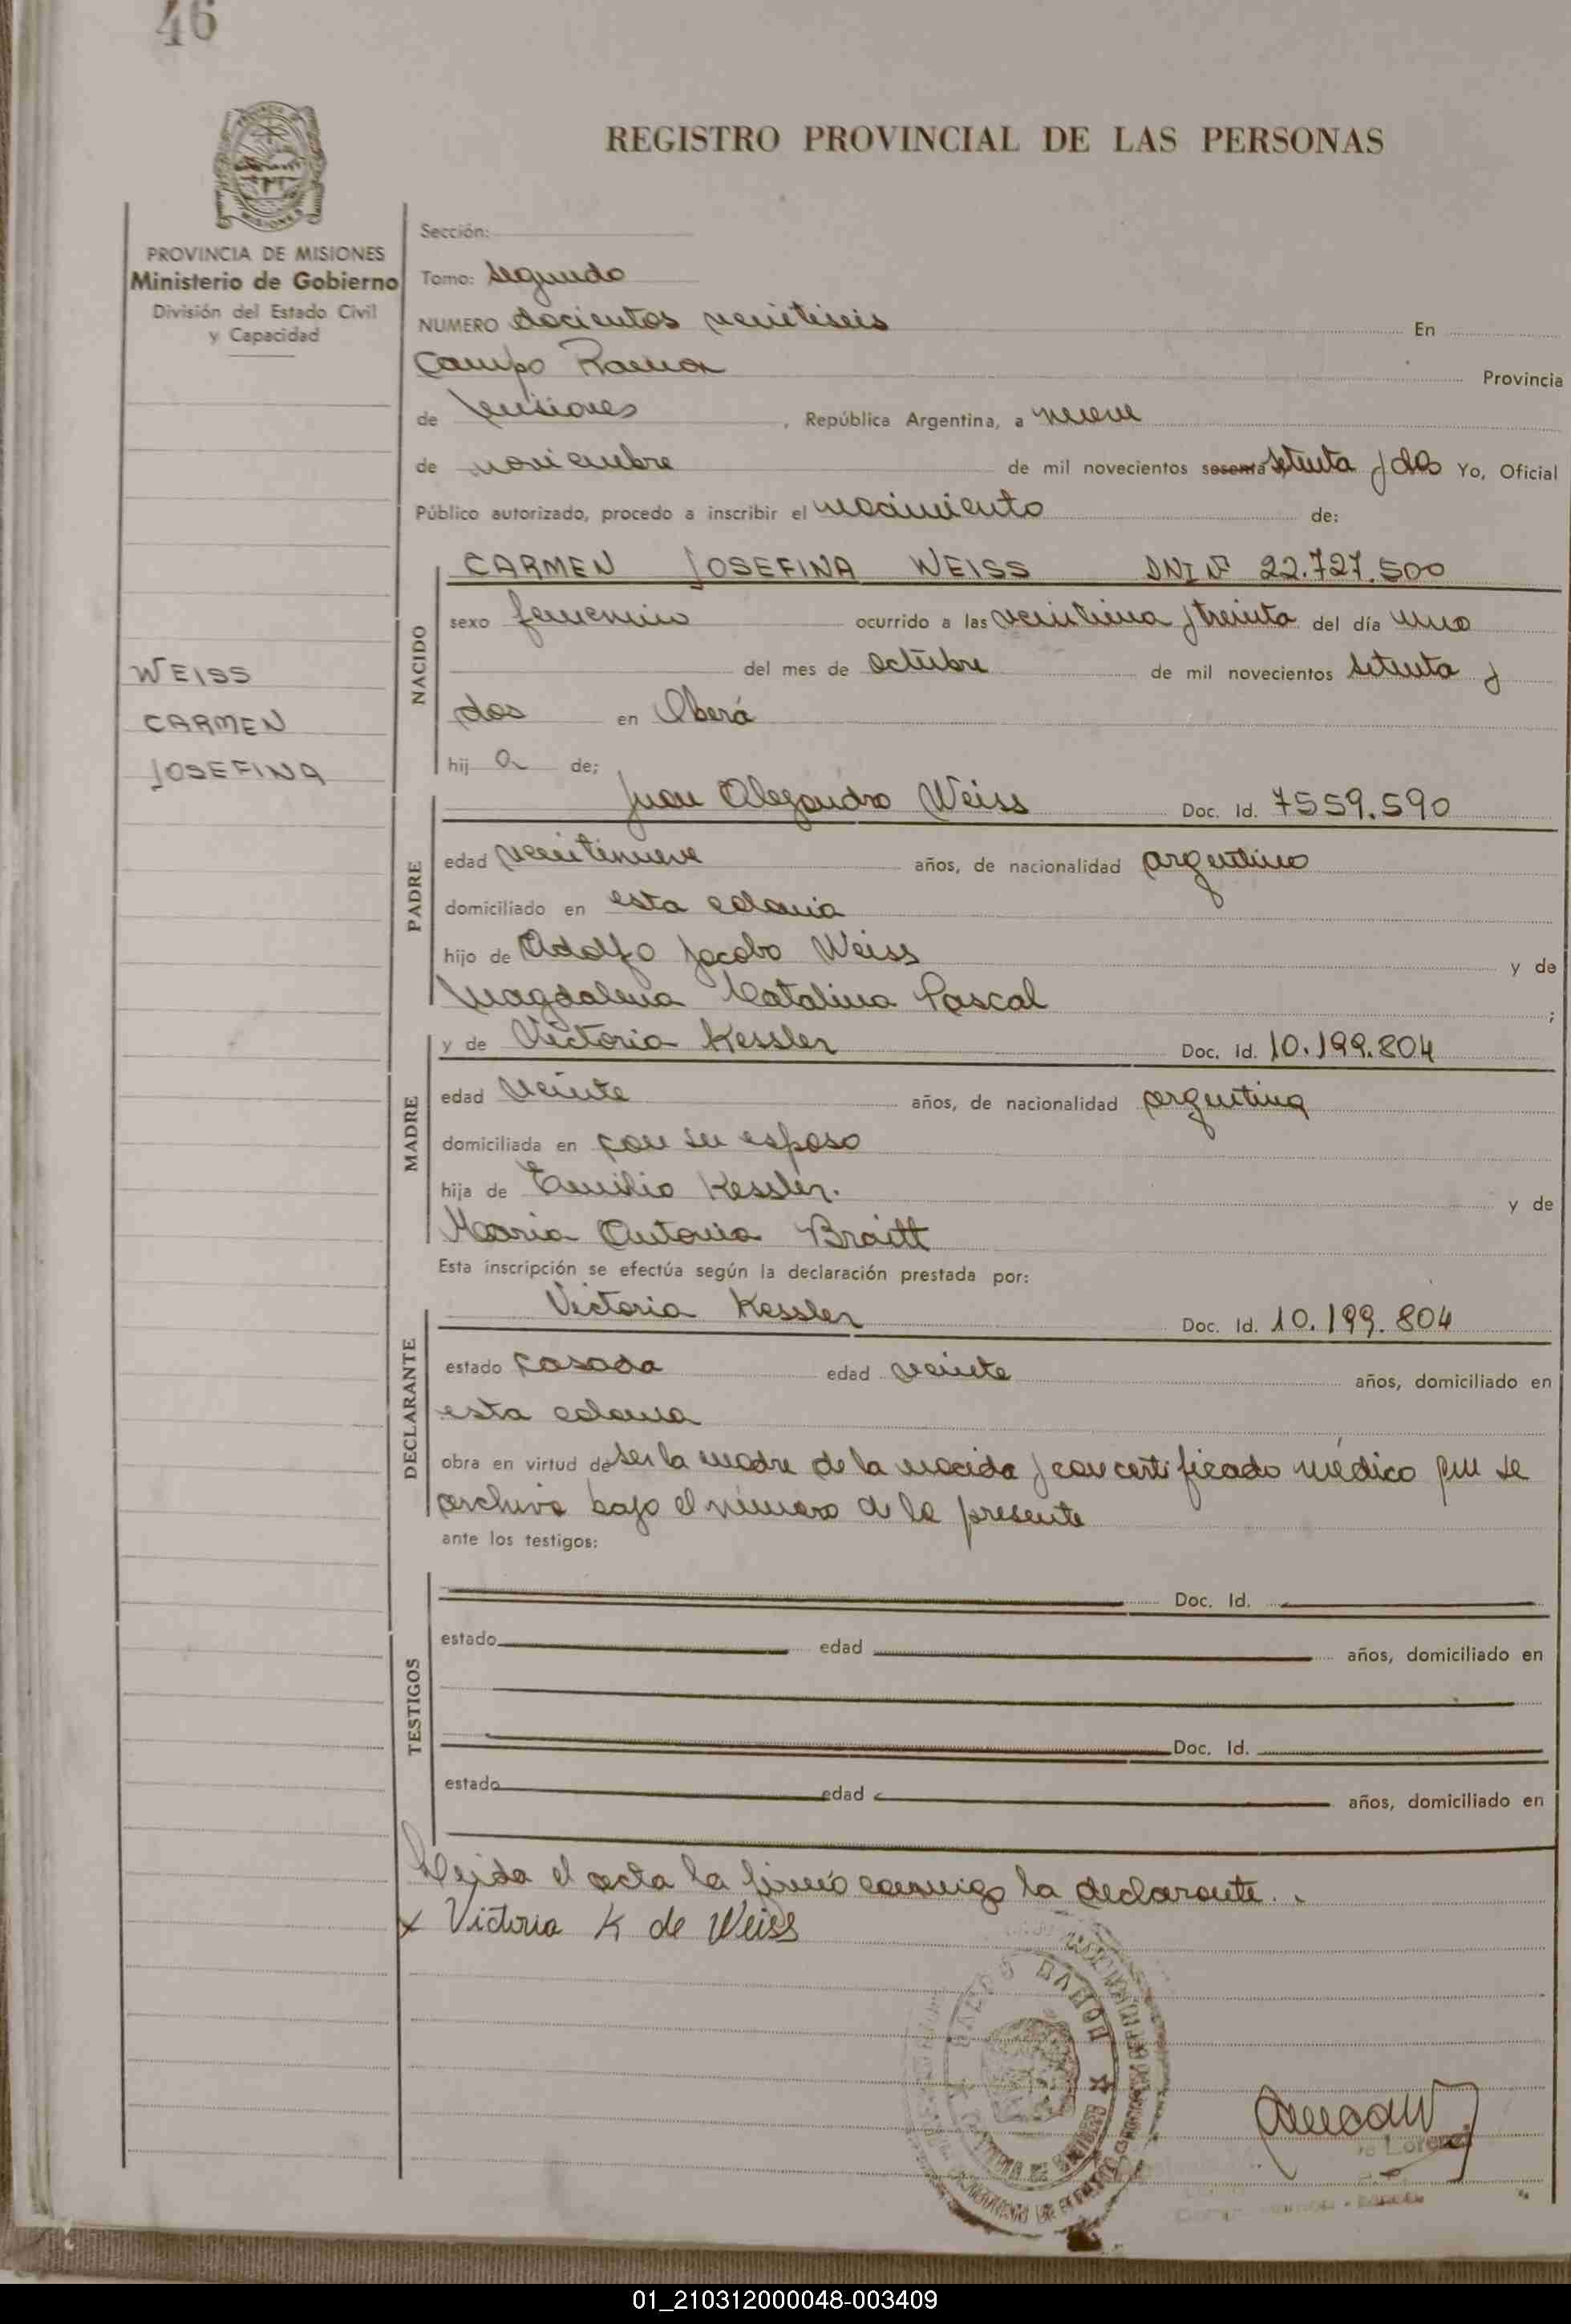 46
REGISTRO PROVINCIAL DE LAS PERSONAS
MISIONES
PROVINCIA DE MISIONES
Ministerio de Gobierno
División del Estado Civil
y Capacidad
WEISS
CARMEN
JOSEFINA
Sección:
Tomo: Segundo
NUMERO docientos veintiseis En
Campo Ramon Provincia
de Misiones, República Argentina, a nueve
de noviembre de mil novecientos sesenta setenta y dos Yo, Oficial
Público autorizado, procedo a inscribir el nacimiento de:
NACIDO
CARMEN JOSEFINA WEISS DNI Nº 22.727.500
sexo femenino ocurrido a las veintiuna y treinta del día uno
del mes de octubre de mil novecientos setenta y
dos en Oberá
hij a de;
PADRE
Juan Alejandro Weiss Doc. Id. 7559.590
edad veintinueve años, de nacionalidad argentino
domiciliado en esta colonia
hijo de Adolfo Jacobo Weiss y de
Magdalena Catalina Pascal ;
MADRE
y de Victoria Kessler Doc. Id. 10.199.804
edad veinte años, de nacionalidad argentina
domiciliada en con su esposo
hija de Emilio Kessler. y de
Maria Antonia Braitt
Esta inscripción se efectúa según la declaración prestada por:
DECLARANTE
Victoria Kessler Doc. Id. 10.199.804
estado casada edad veinte años, domiciliado en
esta colonia
obra en virtud de ser la madre de la nacida y con certificado médico que se
archiva bajo el número de la presente
ante los testigos:
TESTIGOS
Doc. Id.
estado edad años, domiciliado en
Doc. Id.
estado edad años, domiciliado en
Leida el acta la firmó conmigo la declarante.
x Victoria K de Weiss
CAMPO RAMON
01_210312000048-003409